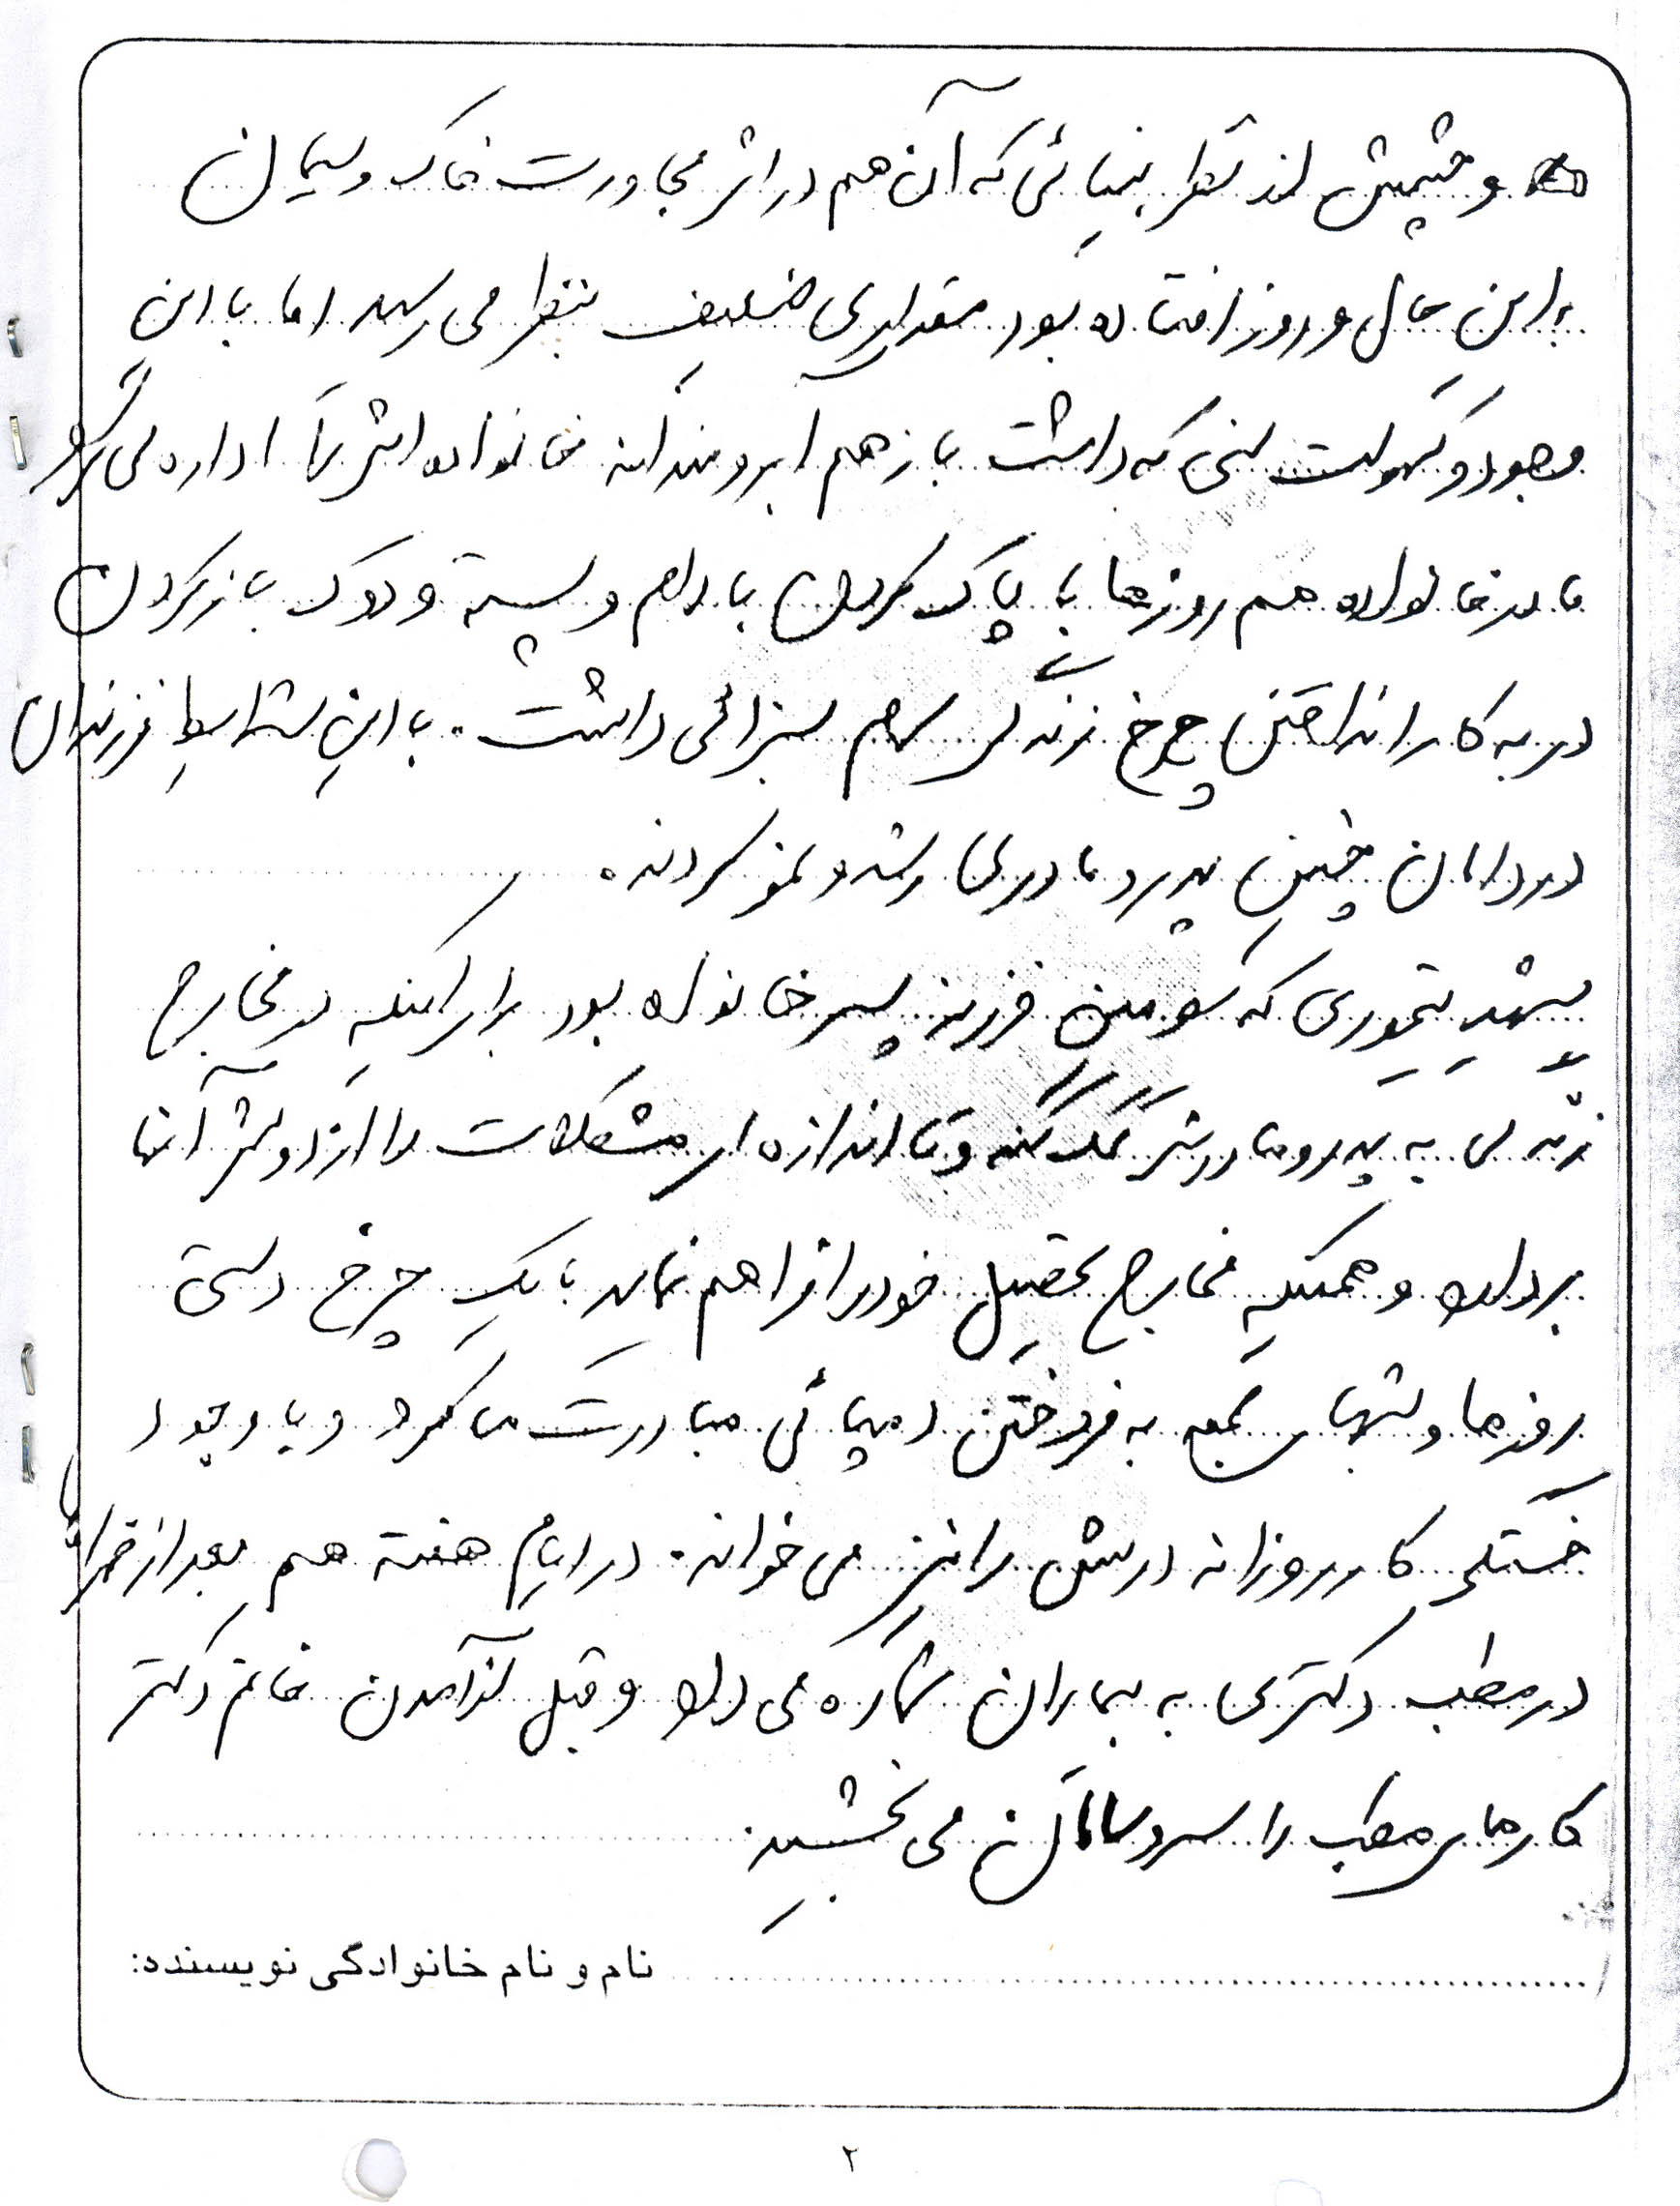 و چشمش از نظر بینائی که آن هم در اثر مجاورت خاک و سیمان
به این حال و روز افتاده بود مقداری ضعیف بنظر می رسید اما با این
وجود و کهولت سنی که داشت باز هم آبرومندانه خانواده اش را اداره می کرد
مادر خانواده هم روزها با پاک کردن بادام و پسته و دوک باز کردن
در به کار انداختن چرخ زندگی سهم بسزائی داشت. با این شرایط فرزندان
در دامان چنین پدر و مادری رشد و نمو کردند.
شهید تیموری که سومین فرزند پسر خانواده بود برای اینکه در مخارج
زندگی به پدر و مادرش کمک کند و تا اندازه ای مشکلات را از دوش آنها
بردارد و همینکه مخارج تحصیل خود را فراهم نماید با یک چرخ دستی
روزها و شبهای جمعه به فروختن دمپائی مبادرت می کرد و با وجود
خستگی کار روزانه درسش را نیز می خواند. در ایام هفته هم بعد از
در مطب دکتری به بیماران شماره می داد و قبل از آمدن خانم دکتر
کارهای مطب را سر و سامان می بخشید.
نام و نام خانوادگی نویسنده:
۲